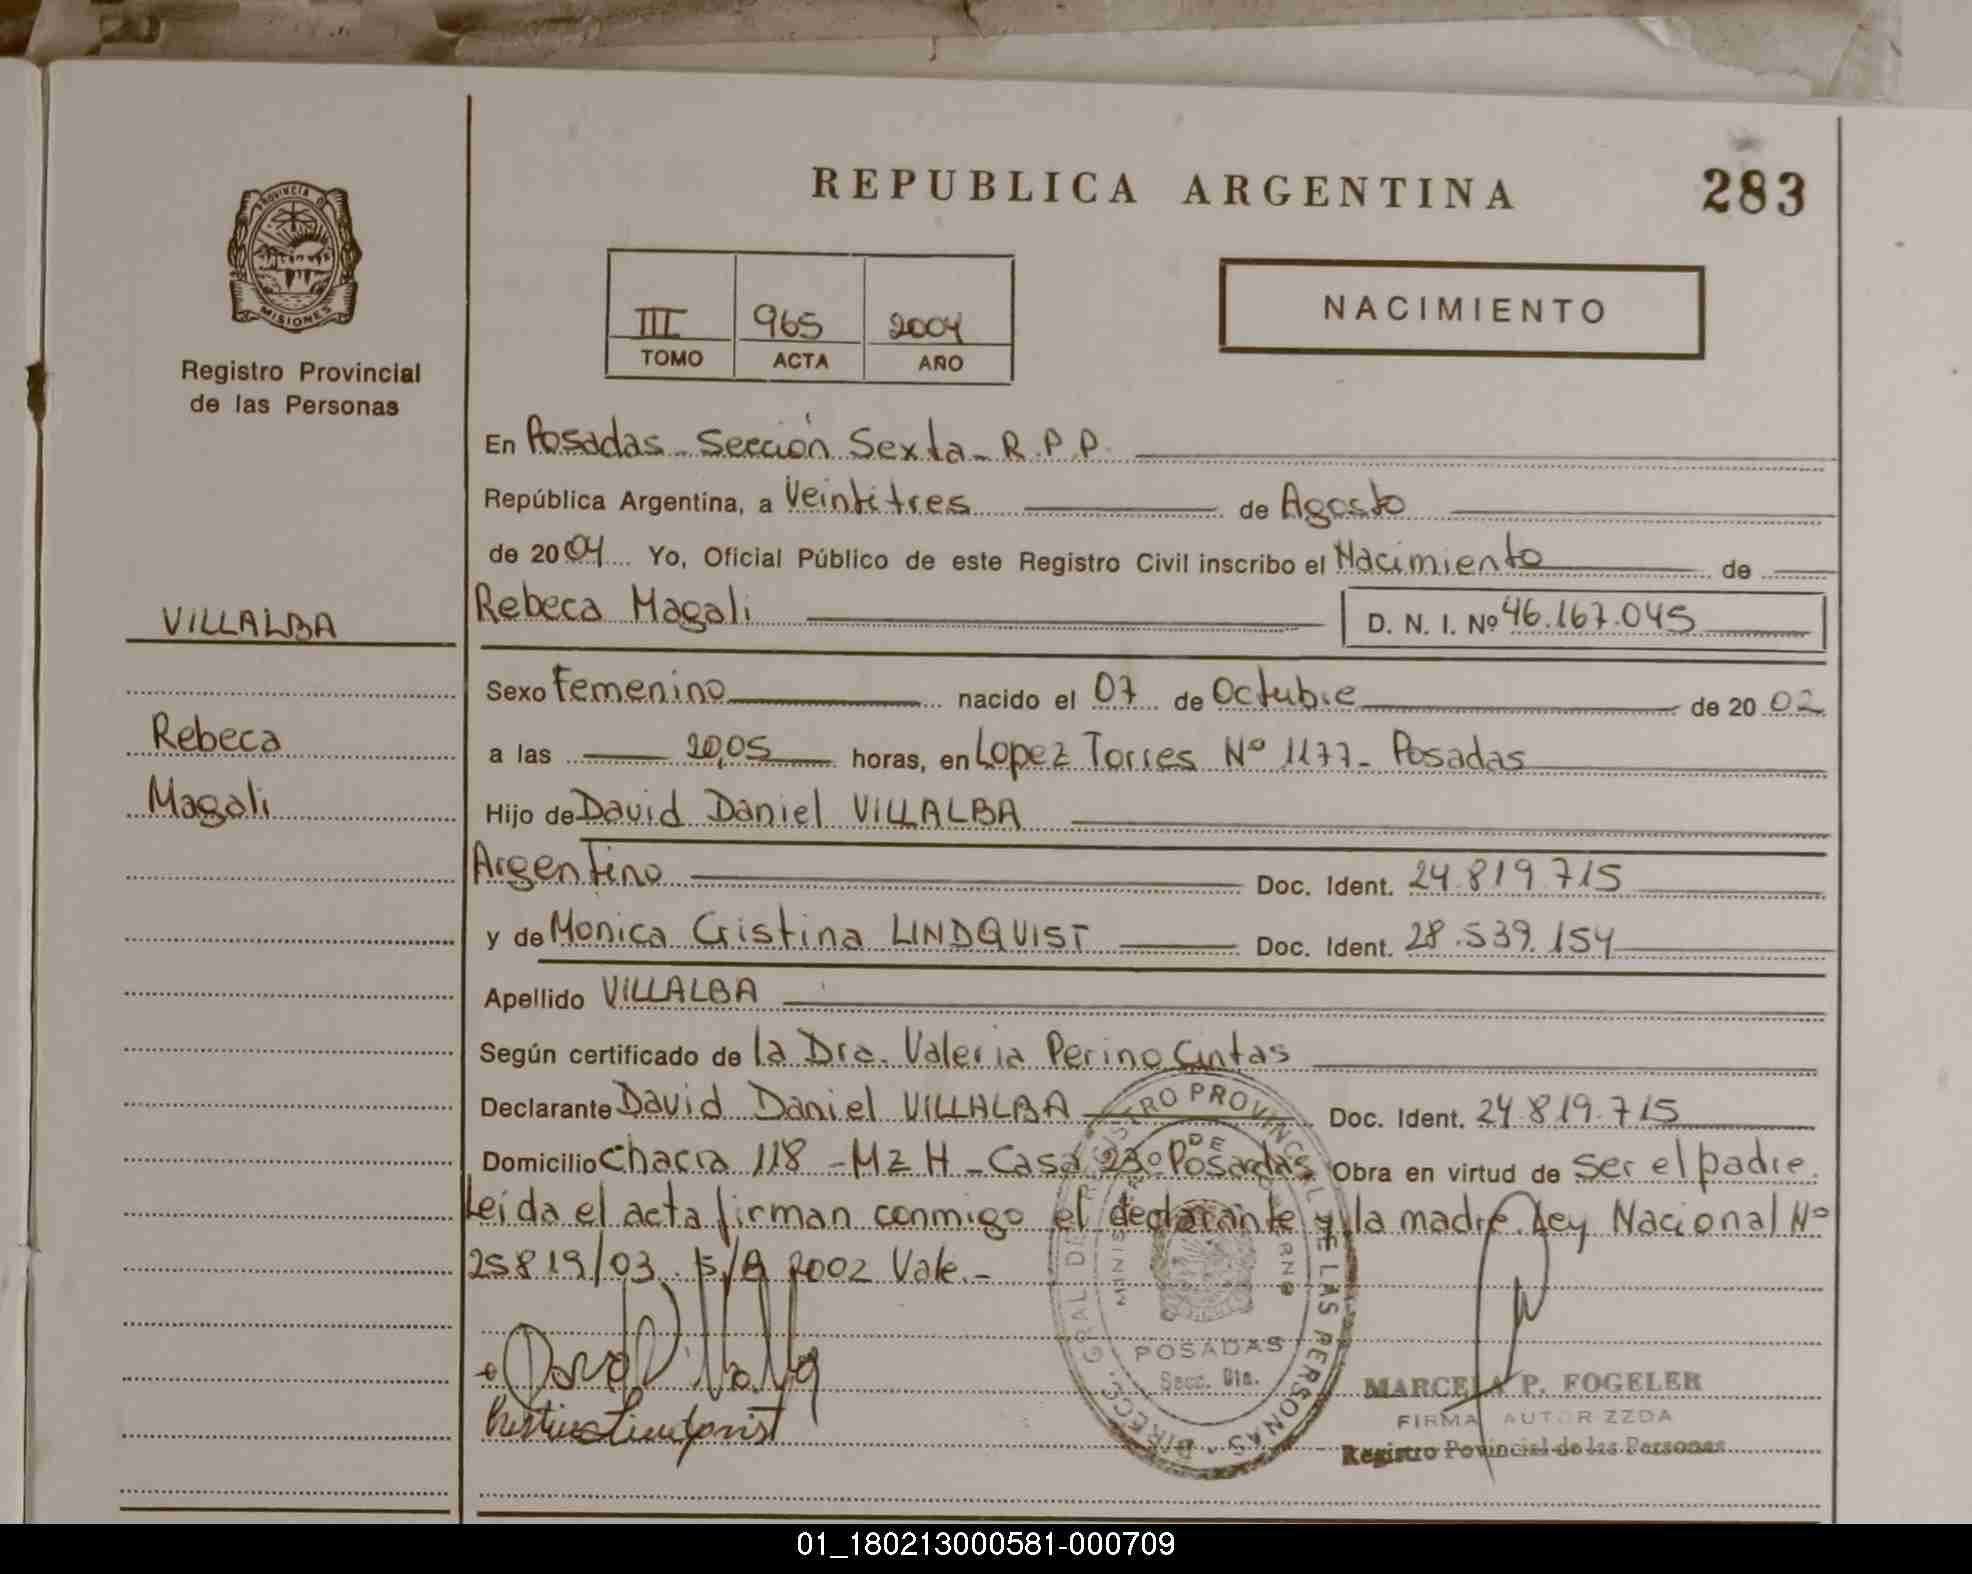 PROVINCIA DE
MISIONES
Registro Provincial
de las Personas
REPUBLICA ARGENTINA
283
III 965 2004
TOMO ACTA AÑO
NACIMIENTO
En Posadas - Sección Sexta - R.P.P.
República Argentina, a Veintitres de Agosto
de 2004 Yo, Oficial Público de este Registro Civil inscribo el Nacimiento de
Rebeca Magali D. N. I. Nº 46.167.045
VILLALBA
Rebeca
Magali
Sexo Femenino nacido el 07 de Octubre de 2002
a las 20,05 horas, en Lopez Torres Nº 1177 - Posadas
Hijo de David Daniel VILLALBA
Argentino Doc. Ident. 24.819.715
y de Monica Cristina LINDQUIST Doc. Ident. 28.539.154
Apellido VILLALBA
Según certificado de la Dra. Valeria Perino Cintas
Declarante David Daniel VILLALBA Doc. Ident. 24.819.715
Domicilio Chacra 118 - Mz H - Casa 23 Posadas Obra en virtud de ser el padre.
Leída el acta firman conmigo el declarante y la madre. Ley Nacional Nº
25819/03. 2002 Vale.-
DIRECC. GRAL. DE REGISTRO PROVINCIAL DE LAS PERSONAS
POSADAS
Secc. 6ta.
MARCELA P. FOGELER
FIRMA AUTORIZZDA
Registro Povincial de las Personas
01_180213000581-000709